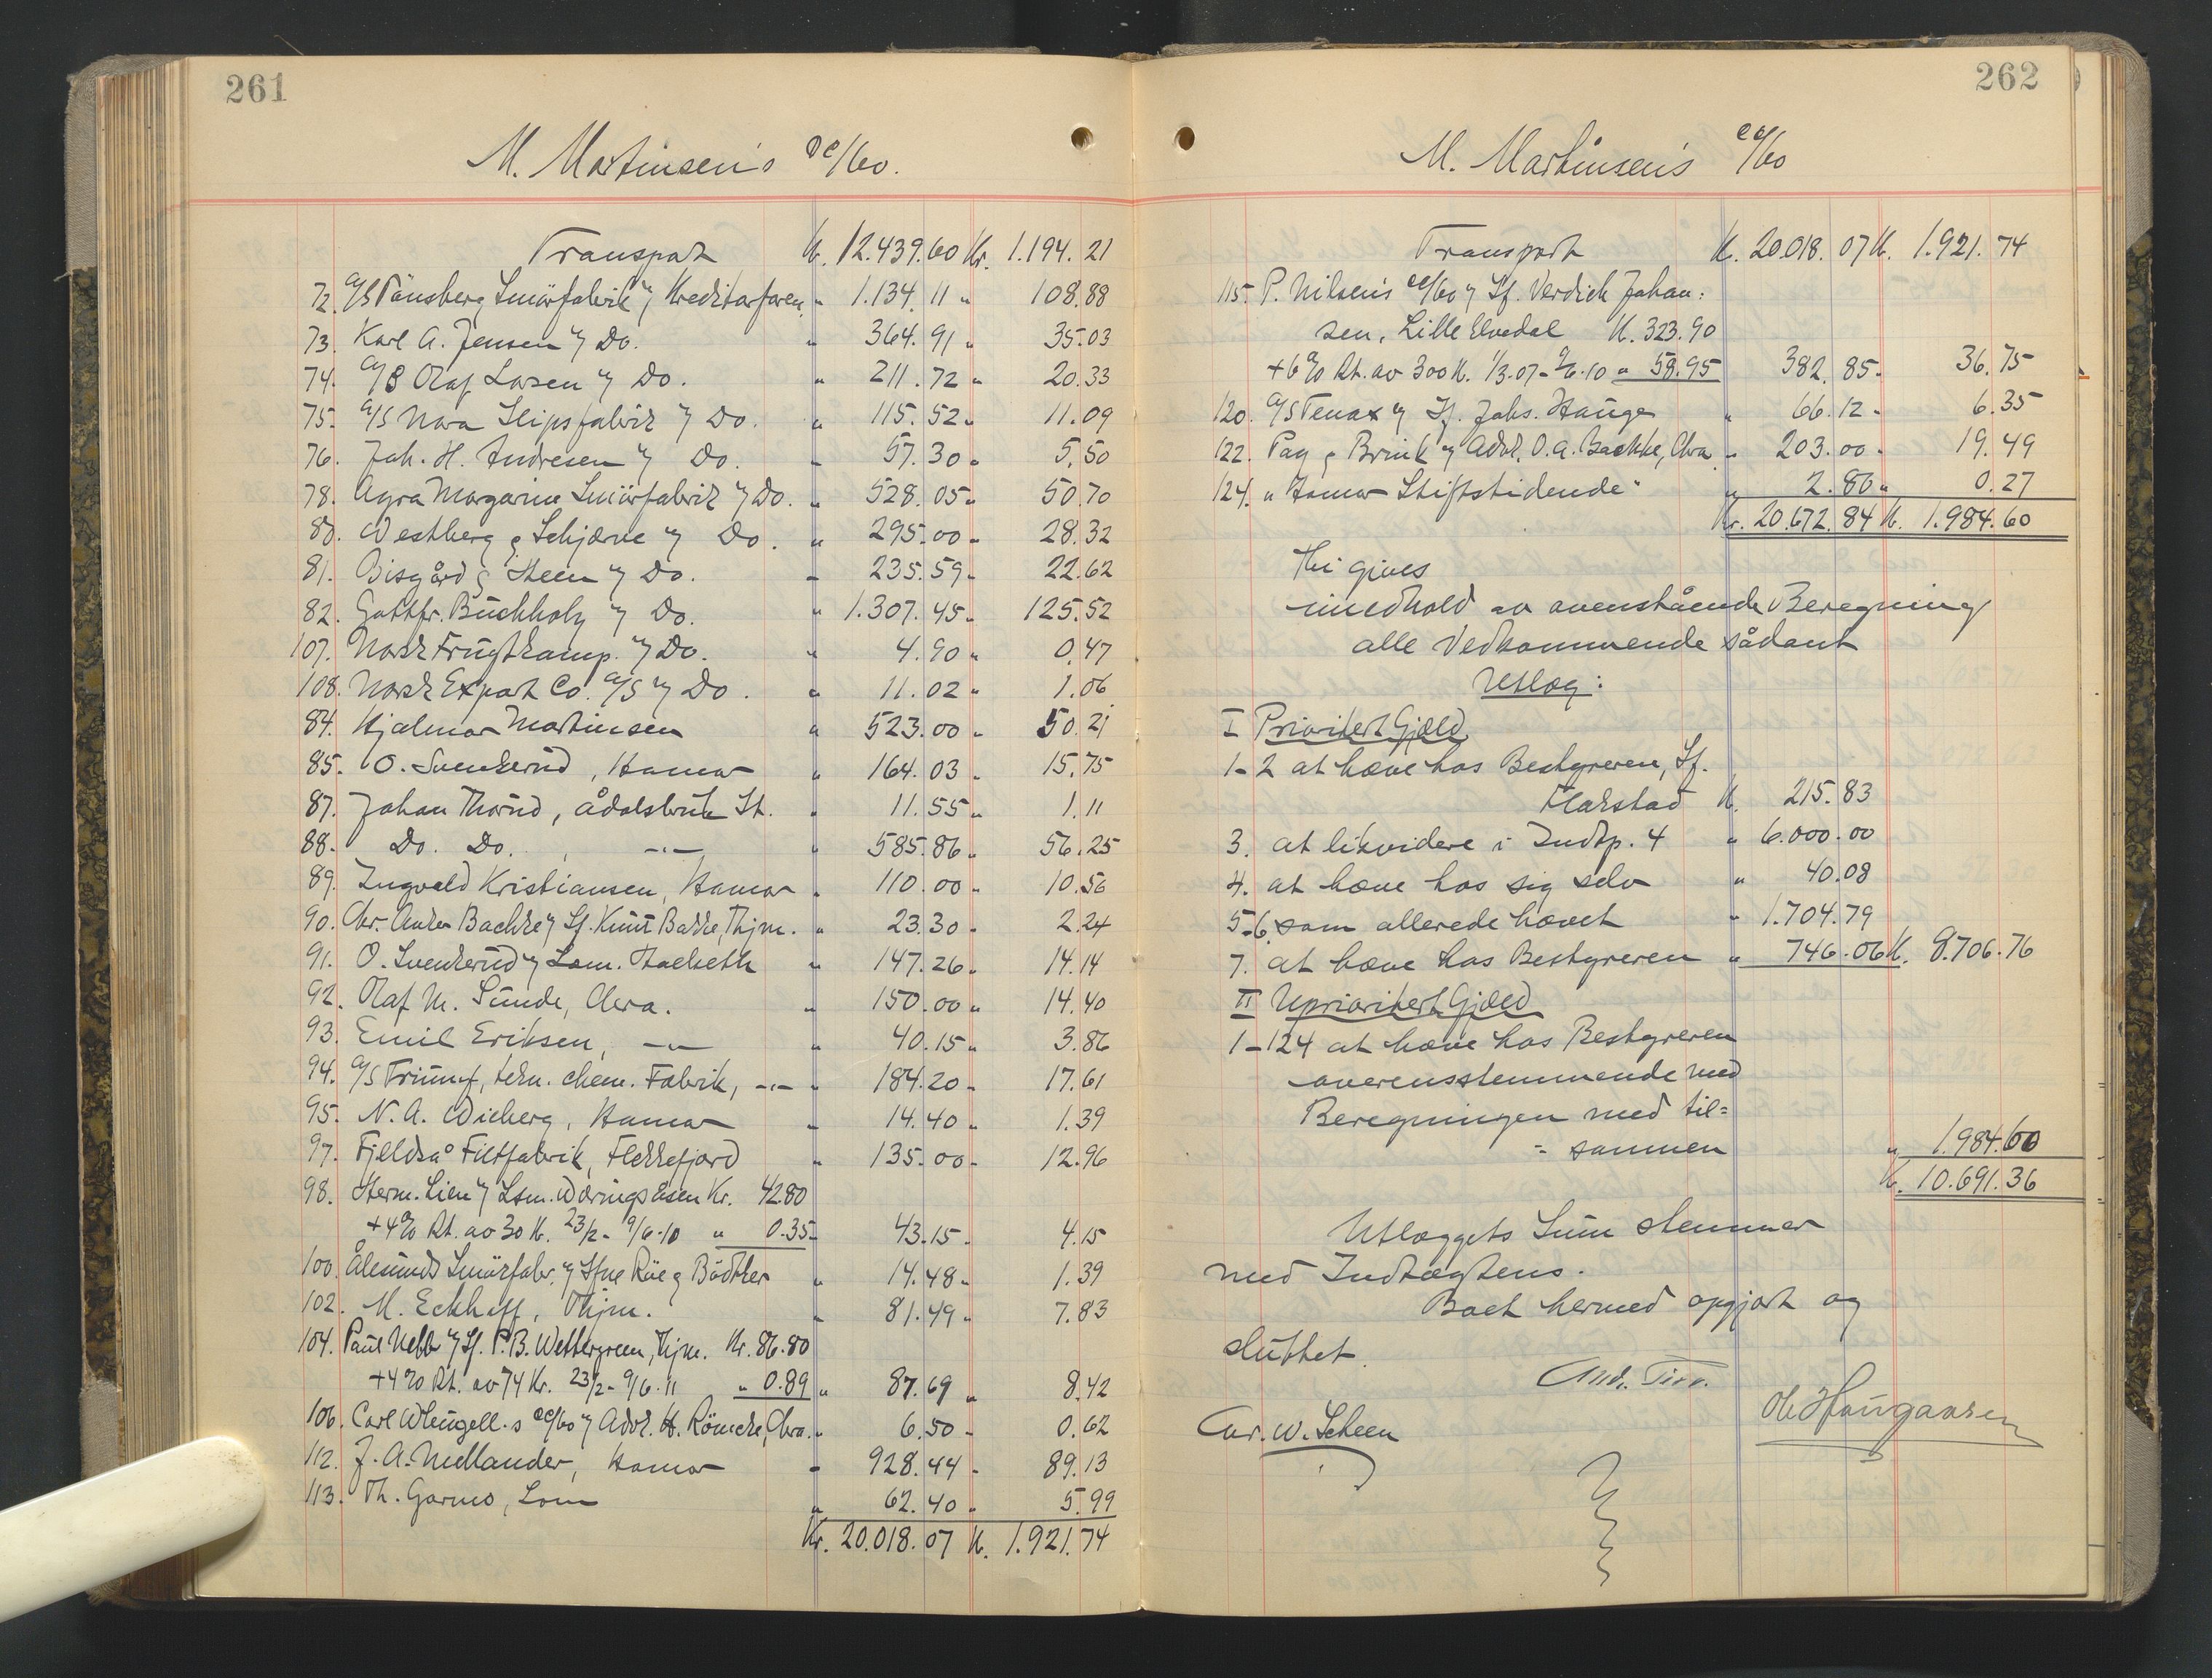 261
M. Martinsen's
Transport Kr. 12.439.60 Kr. 1.194.21
72. A/S Tönsberg Smörfabrik v/ Kreditorforen. " 1.134.11 " 108.88
73. Karl A. Jensen v/ Do. " 364.91 " 35.03
74. A/S Olaf Larsen v/ Do. " 211.72 " 20.33
75. A/S Nora Slipsfabrik v/ Do. " 115.52 " 11.09
76. Joh. H. Andresen v/ Do. " 57.30 " 5.50
78. Agra Margarine Smörfabrik v/ Do. " 528.05 " 50.70
80. Westberg & Schjærve v/ Do. " 295.00 " 28.32
81. Bisgård & Steen v/ Do. " 235.59 " 22.62
82. Gottfr. Buchholz v/ Do. " 1.307.45 " 125.52
107. Norsk Frugtkomp. v/ Do. " 4.90 " 0.47
108. Norsk Export Co. A/S v/ Do. " 11.02 " 1.06
84. Hjalmar Martinsen " 523.00 " 50.21
85. O. Svenkerud, Hamar " 164.03 " 15.75
87. Johan Thorud, Ådalsbruk St. " 11.55 " 1.11
88. Do. Do. , -"- " 585.86 " 56.25
89. Ingvald Kristiansen, Hamar " 110.00 " 10.56
90. Chr. Anker Bachke v/ Sf. Knut Bakke, Thjm. " 23.30 " 2.24
91. O. Svenkerud v/ Lsm. " 147.26 " 14.14
92. Olaf M. Sunde, Chra. " 150.00 " 14.40
93. Emil Eriksen, -"- " 40.15 " 3.86
94. A/S Triumf, tekn. chem. Fabrik, -"- " 184.20 " 17.61
95. N. A. Wiberg, Hamar " 14.40 " 1.39
97. Fjeldså Filtfabrik, Flekkefjord " 135.00 " 12.96
98. Herm. Lien v/ Lsm. Wærings Åsen Kr. 42.80
+ 4% Rt. av 30 K. 23/2 - 9/6-10 " 0.35 43.15 " 4.15
100. Ålesunds Smörfabr. v/ Sfne Röe & Bödtker " 14.48 " 1.39
102. M. Eckhoff, Thjm. " 81.49 " 7.83
104. Paul Nebb v/ Sf. P.B. Wettergreen, Thjm. Kr. 86.80
+ 4% Rt. av 74 Kr. 23/2 - 9/6-11 " 0.89 " 87.69 " 8.42
106. Carl v/ Adv. H. Römcke, Chra. " 6.50 " 0.62
112. J. A. Mellander, Hamar " 928.44 " 89.13
113. Th. Garmo, Lom " 62.40 " 5.99
Kr. 20.018.07 K. 1.921.74
262
M. Martinsen's
Transport K. 20.018.07 K. 1.921.74
115. P. Nilsen's v/ Sf. Verdick Johan:
sen, Lille Elvedal K. 323.90
+ 6% Rt. av 300 K. 1/3.07 - 9/6.10 " 58.95 382.85 " 36.75
120. A/S Tenax v/ Sf. Johs. Hauge " 66.12 " 6.35
122. Pay & Brink v/ Adv. O.A. Bachke, Chra. " 203.00 " 19.49
124. "Hamar Stiftstidende" " 2.80 " 0.27
Kr. 20.672.84 K. 1.984.60
Thi gives
imedhold av ovenstående Beregning
alle Vedkommende sådant
Utlæg:
I Prioritert Gjæld
1-2 at hæve hos Bestyreren, Sf.
Harstad K. 215.83
3. at likvidere i Indtp. 4 " 6.000.00
4. at hæve hos sig selv " 40.08
5-6. som allerede hævet " 1.704.79
7. at hæve hos Bestyreren " 746.06 K. 8.706.76
II Uprioritert Gjæld
1-124 at hæve hos Bestyreren
overensstemmende med
Beregningen med til=
= sammen " 1.984.60
K. 10.691.36
Utlæggets Sum stemmer
med Indtægtens.
Boet hermed opgjort og
sluttet.
Car. W. Scheen
Ole Haugaasen